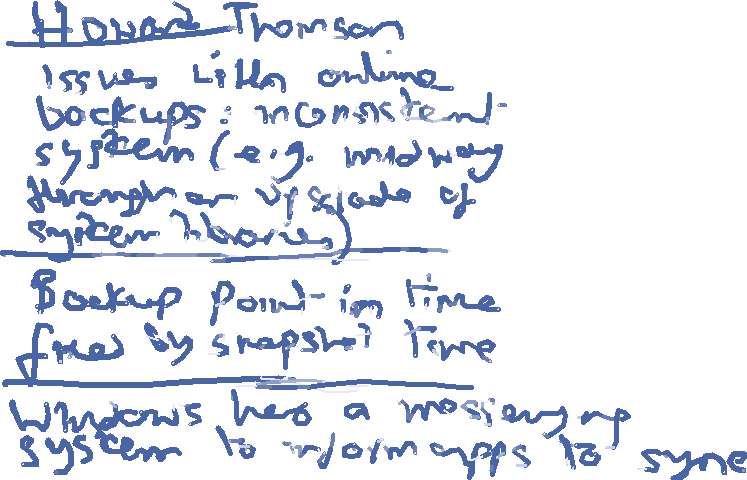 Howard Thomson
Issues with online
backups: inconsistent
system (e.g. midway
through an upgrade of
system libraries)
Backup point-in time
fixed by snapshot time
Windows has a messenging
system to inform apps to sync